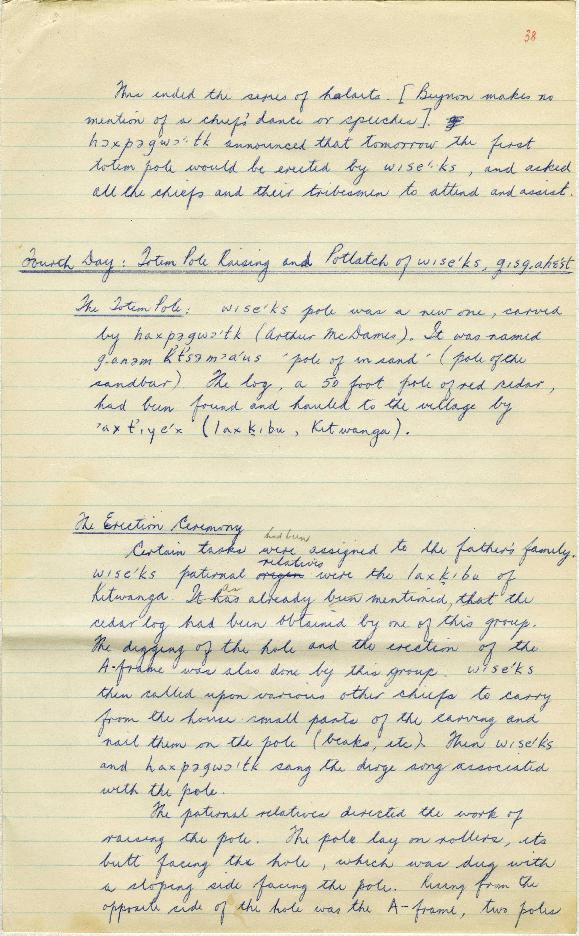 38
This ended the series of halaits. [Beynon makes no
mention of a chief's dance or speeches].
hɔxpəgwɔ'·tk announced that tomorrow the first
totem pole would be erected by wise'·ks, and asked
all the chiefs and their tribesmen to attend and assist.
Fourth Day: Totem Pole Raising and Potlatch of wise'ks, gisg.ahe'st
The Totem Pole: wise'ks pole was a new one, carved
by haxpəgwɔ'tk (Arthur McDames). It was named
g.anəm k̓tsəmɔa'us 'pole of in sand' (pole of the
sandbar). The log, a 50 foot pole of red cedar,
had been found and hauled to the village by
'ax t̓iye'x (laxḵibu, Kitwanga).
The Erection Ceremony
had been
Certain tasks were assigned to the father's family.
relatives
wise'ks paternal were the laxḵibu of
as
Kitwanga. It has already been mentioned, that the
cedar log had been obtained by one of this group.
The digging of the hole and the erection of the
A-frame was also done by this group. wise'ks
then called upon various other chiefs to carry
from the house small parts of the carving and
nail them on the pole (beaks, etc). Then wise'ks
and haxpəgwɔ'tk sang the dirge song associated
with the pole.
The paternal relatives directed the work of
raising the pole. The pole lay on rollers, its
butt facing the hole, which was dug with
a sloping side facing the pole. Rising from the
opposite side of the hole was the A-frame, two poles